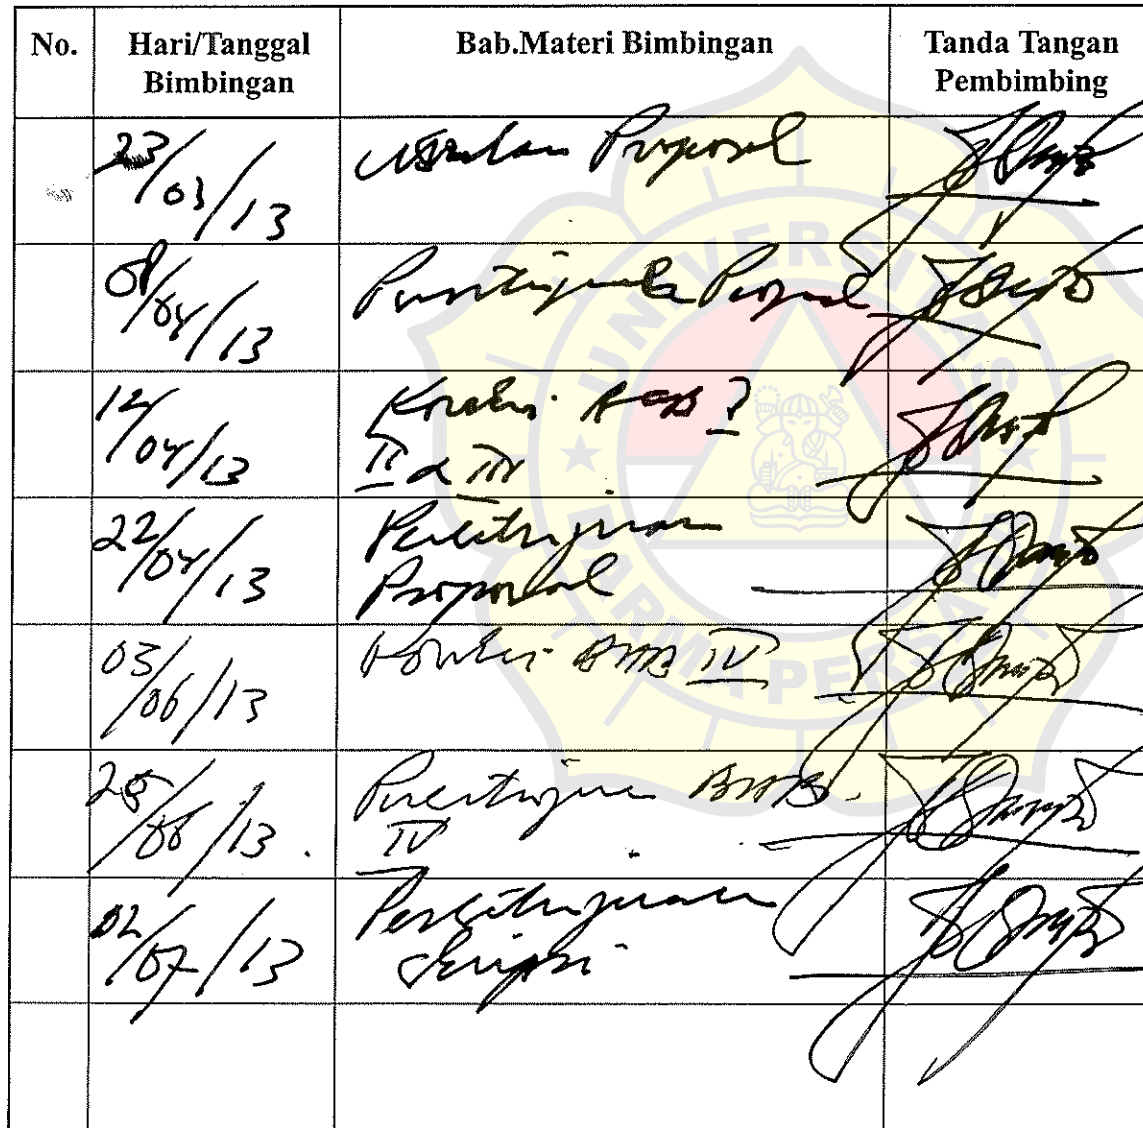 No. Hari/Tanggal Bimbingan Bab.Materi Bimbingan Tanda Tangan Pembimbing
23/03/13 Usulan Proposal
08/04/13 Persetujuan Proposal
12/04/13 Koreksi BAB I
II & III
22/04/13 Persetujuan
Proposal
03/06/13 Koreksi BAB IV
/06/13 Persetujuan BAB
IV
02/07/13 Persetujuan
Skripsi
UNIVERSITAS
DARMA PERSADA